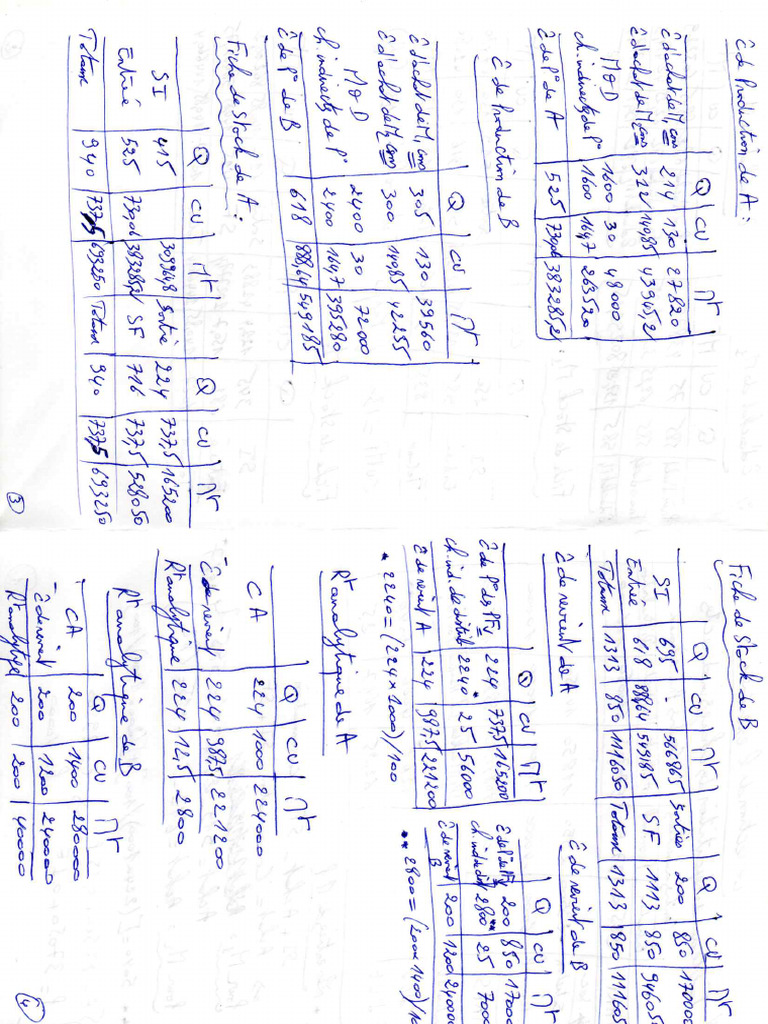 Ĉ de Production de A :
Q CU Mt
Ĉ d'achat de M1 cons 214 130 27820
Ĉ d'achat de M2 cons 312 140,85 43945,2
MOD 1600 30 48000
ch. indirectes de P° 1600 164,7 263520
Ĉ de P° de A 525 730,06 383285,2
Ĉ de Production de B
Q CU Mt
Ĉ d'achat de M1 cons 305 130 39560
Ĉ d'achat de M2 cons 300 140,85 42255
MOD 2400 30 72000
ch. indirectes de P° 2400 164,7 395280
Ĉ de P° de B 618 888,64 549185
Fiche de Stock de A :
Q CU Mt Q CU Mt
SI 415 309964,8 Sortie 224 737,5 165200
Entrée 525 730,06 383285,2 SF 716 737,5 528050
Totaux 940 737,5 693250 Totaux 940 737,5 693250
3
Fiche de Stock de B
Q CU Mt Q CU Mt
SI 695 - 566865 Sorties 200 850 170000
Entrée 618 888,64 549185 SF 1113 850 94605
Totaux 1313 850 1116050 Totaux 1313 850 111605
Ĉ de revient de A
Q CU Mt
Ĉ de P° des PF V 224 737,5 165200
ch. ind. de distrib 2240 * 25 56000
Ĉ de revient A 224 987,5 221200
* 2240 = (224 x 1000)/100
Ĉ de revient de B
Q CU Mt
Ĉ de P° de PFV 200 850 17000
ch. ind de dist 2800 ** 25 7000
Ĉ de revient B 200 1200 24000
** 2800 = (200 x 1400)/10
Rt analytique de A
Q CU Mt
CA 224 1000 224000
- Ĉ de revient 224 987,5 221200
Rt analytique 224 12,5 2800
Rt analytique de B
Q CU Mt
CA 200 1400 280000
- Ĉ de revient 200 1200 240000
Rt analytique 200 200 40000
4